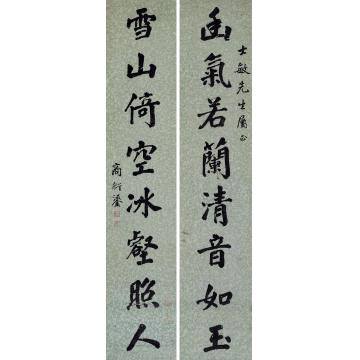 幽氣若蘭清音如玉
士敏先生屬正
雪山倚空冰壑照人
商衍鎏